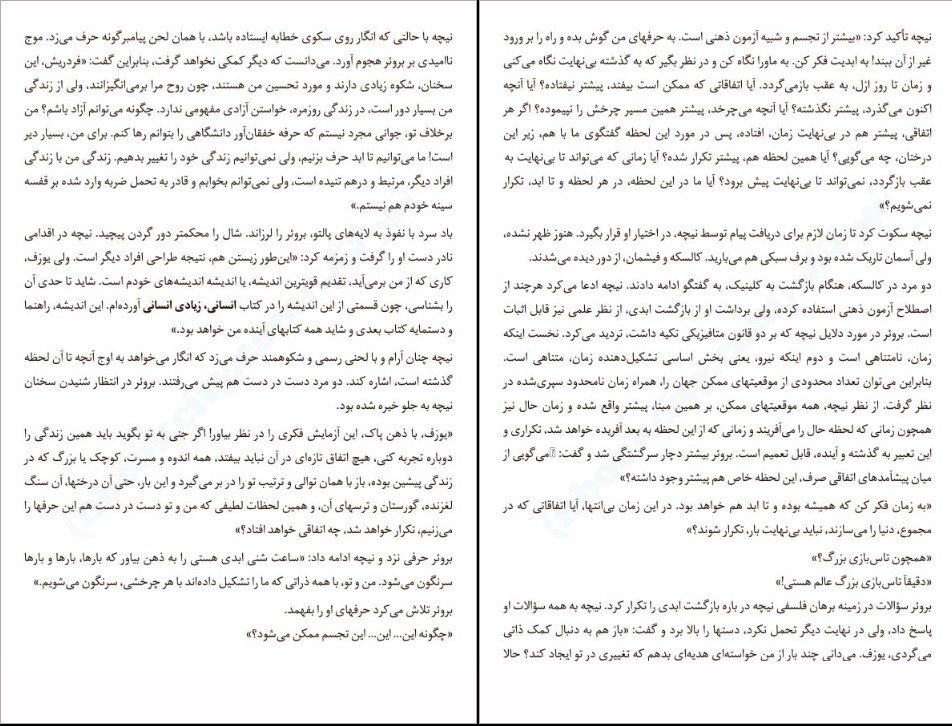 نیچه با حالتی که انگار روی سکوی خطابه ایستاده باشد، با همان لحن پیامبرگونه حرف می‌زد. موج
ناامیدی بر بروئر هجوم آورد. می‌دانست که دیگر کمکی نخواهد گرفت، بنابراین گفت: «فردریش، این
سخنان، شکوه زیادی دارند و مورد تحسین من هستند، چون روح مرا برمی‌انگیزانند، ولی از زندگی
من بسیار دور است، در زندگی روزمره، خواستن آزادی مفهومی ندارد. چگونه می‌توانم آزاد باشم؟ من
برخلاف تو، جوانی مجرد نیستم که حرفه خفقان‌آور دانشگاهی را بتوانم رها کنم. برای من، بسیار دیر
است! ما می‌توانیم تا ابد حرف بزنیم، ولی نمی‌توانیم زندگی خود را تغییر بدهیم. زندگی من با زندگی
افراد دیگر، مرتبط و درهم تنیده است، ولی نمی‌توانم بخوابم و قادر به تحمل ضربه وارد شده بر قفسه
سینه خودم هم نیستم.»
باد سرد با نفوذ به لایه‌های پالتو، بروئر را لرزاند. شال را محکمتر دور گردن پیچید. نیچه در اقدامی
نادر دست او را گرفت و زمزمه کرد: «این‌طور زیستن هم، نتیجه طراحی افراد دیگر است. ولی یوزف،
کاری که از من برمی‌آید، تقدیم قویترین اندیشه، یا اندیشه اندیشه‌های خودم است. شاید تا حدی آن
را بشناسی، چون قسمتی از این اندیشه را در کتاب انسانی، زیادی انسانی آورده‌ام. این اندیشه، راهنما
و دستمایه کتاب بعدی و شاید همه کتابهای آینده من خواهد بود.»
نیچه چنان آرام و با لحنی رسمی و شکوهمند حرف می‌زد که انگار می‌خواهد به اوج آنچه تا آن لحظه
گذشته است، اشاره کند. دو مرد دست در دست هم پیش می‌رفتند. بروئر در انتظار شنیدن سخنان
نیچه به جلو خیره شده بود.
«یوزف، با ذهن پاک، این آزمایش فکری را در نظر بیاور! اگر جنی به تو بگوید باید همین زندگی را
دوباره تجربه کنی، هیچ اتفاق تازه‌ای در آن نباید بیفتد، همه اندوه و مسرت، کوچک یا بزرگ که در
زندگی پیشین بوده، باز با همان توالی و ترتیب تو را در بر می‌گیرد و این بار، حتی آن درختها، آن سنگ
لغزنده، گورستان و ترسهای آن، و همین لحظات لطیفی که من و تو دست در دست هم این حرفها را
می‌زنیم، تکرار خواهد شد، چه اتفاقی خواهد افتاد؟»
بروئر حرفی نزد و نیچه ادامه داد: «ساعت شنی ابدی هستی را به ذهن بیاور که بارها، بارها و بارها
سرنگون می‌شود. من و تو، با همه ذراتی که ما را تشکیل داده‌اند با هر چرخشی، سرنگون می‌شویم.»
بروئر تلاش می‌کرد حرفهای او را بفهمد.
«چگونه این... این... این تجسم ممکن می‌شود؟»
نیچه تأکید کرد: «بیشتر از تجسم و شبیه آزمون ذهنی است. به حرفهای من گوش بده و راه را بر ورود
غیر از آن ببند! به ابدیت فکر کن. به ماورا نگاه کن و در نظر بگیر که به گذشته بی‌نهایت نگاه می‌کنی
و زمان تا روز ازل، به عقب بازمی‌گردد. آیا اتفاقاتی که ممکن است بیفتد، پیشتر نیفتاده؟ آیا آنچه
اکنون می‌گذرد، پیشتر نگذشته؟ آیا آنچه می‌چرخد، پیشتر همین مسیر چرخش را نپیموده؟ اگر هر
اتفاقی، پیشتر هم در بی‌نهایت زمان، افتاده، پس در مورد این لحظه گفتگوی ما با هم، زیر این
درختان، چه می‌گویی؟ آیا همین لحظه هم، پیشتر تکرار شده؟ آیا زمانی که می‌تواند تا بی‌نهایت به
عقب بازگردد، نمی‌تواند تا بی‌نهایت پیش برود؟ آیا ما در این لحظه، در هر لحظه و تا ابد، تکرار
نمی‌شویم؟»
نیچه سکوت کرد تا زمان لازم برای دریافت پیام توسط نیچه، در اختیار او قرار بگیرد. هنوز ظهر نشده،
ولی آسمان تاریک شده بود و برف سبکی هم می‌بارید. کالسکه و فیشمان، از دور دیده می‌شدند.
دو مرد در کالسکه، هنگام بازگشت به کلینیک، به گفتگو ادامه دادند. نیچه ادعا می‌کرد هرچند از
اصطلاح آزمون ذهنی استفاده کرده، ولی برداشت او از بازگشت ابدی، از نظر علمی نیز قابل اثبات
است. بروئر در مورد دلایل نیچه که بر دو قانون متافیزیکی تکیه داشت، تردید می‌کرد. نخست اینکه
زمان، نامتناهی است و دوم اینکه نیرو، یعنی بخش اساسی تشکیل‌دهنده زمان، متناهی است.
بنابراین می‌توان تعداد محدودی از موقعیتهای ممکن جهان را، همراه زمان نامحدود سپری‌شده در
نظر گرفت. از نظر نیچه، همه موقعیتهای ممکن، بر همین مبنا، پیشتر واقع شده و زمان حال نیز
همچون زمانی که لحظه حال را می‌آفریند و زمانی که از این لحظه به بعد آفریده خواهد شد، تکراری و
این تعبیر به گذشته و آینده، قابل تعمیم است. بروئر بیشتر دچار سرگشتگی شد و گفت: می‌گویی از
میان پیشآمدهای اتفاقی صرف، این لحظه خاص هم پیشتر وجود داشته؟»
«به زمان فکر کن که همیشه بوده و تا ابد هم خواهد بود. در این زمان بی‌انتها، آیا اتفاقاتی که در
مجموع، دنیا را می‌سازند، نباید بی‌نهایت بار، تکرار شوند؟»
«همچون تاس‌بازی بزرگ؟»
«دقیقاً تاس‌بازی بزرگ عالم هستی!»
بروئر سؤالات در زمینه برهان فلسفی نیچه در باره بازگشت ابدی را تکرار کرد. نیچه به همه سؤالات او
پاسخ داد، ولی در نهایت دیگر تحمل نکرد، دستها را بالا برد و گفت: «باز هم به دنبال کمک ذاتی
می‌گردی، یوزف. می‌دانی چند بار از من خواسته‌ای هدیه‌ای بدهم که تغییری در تو ایجاد کند؟ حالا